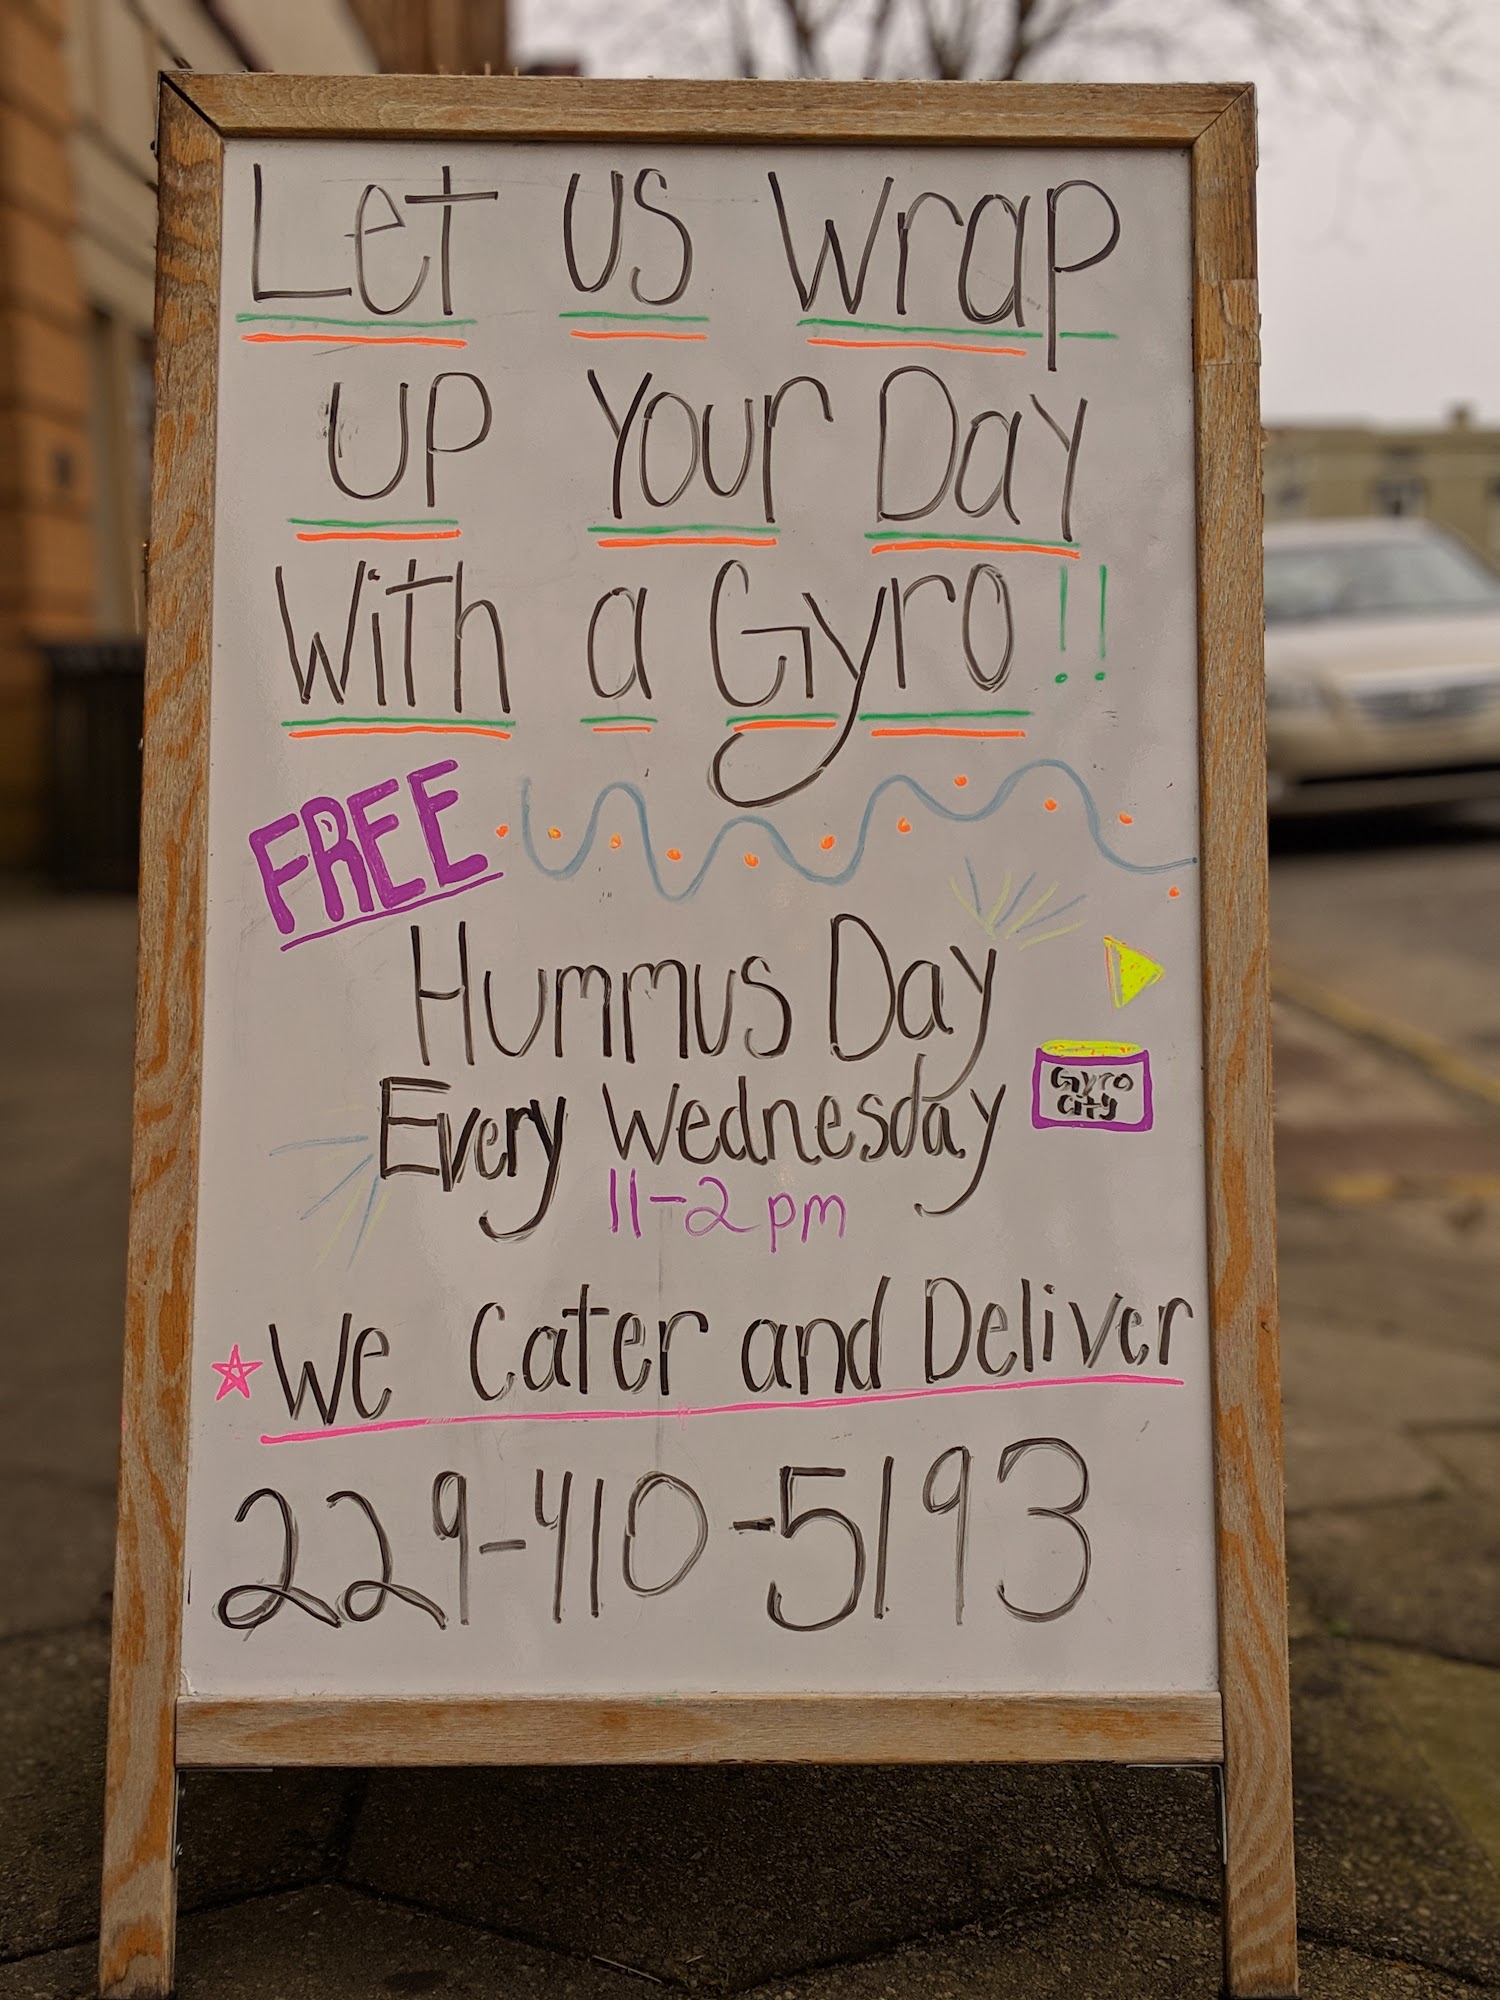 Let us Wrap
up Your Day
With a Gyro!!
FREE
Hummus Day
Every Wednesday
11-2pm
Gyro
City
We Cater and Deliver
229-410-5193